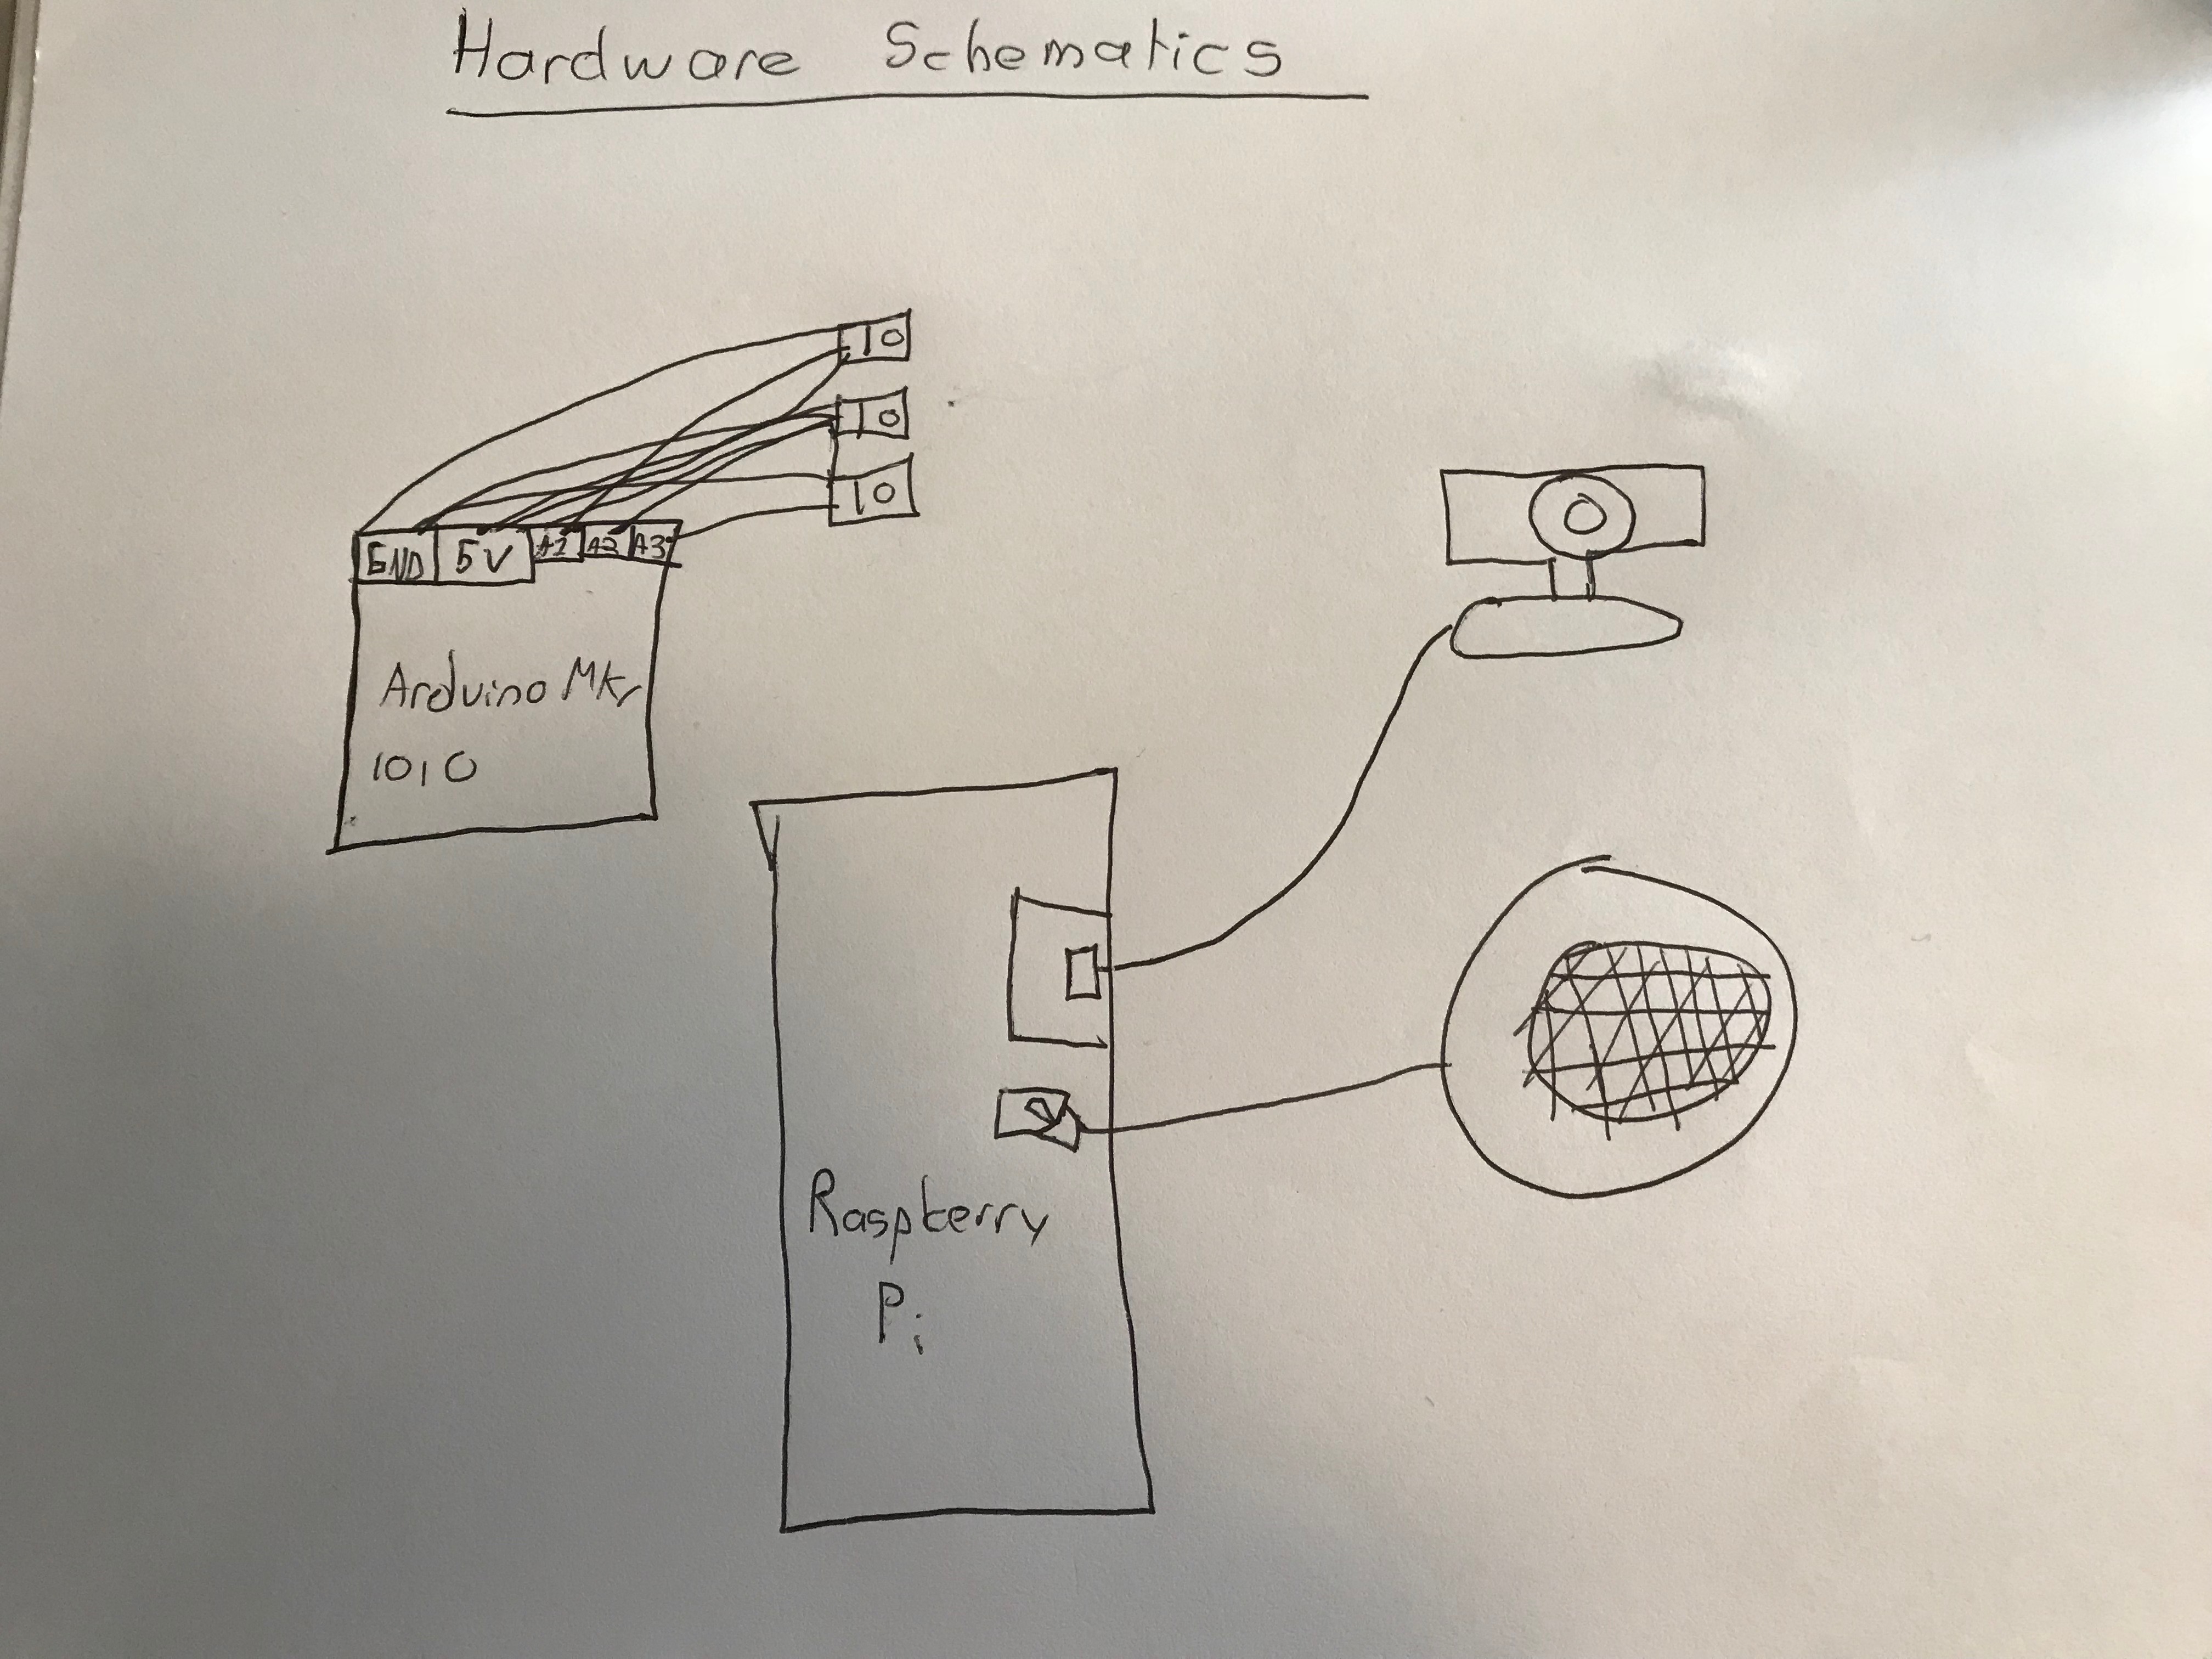 Hardware Schematics
10
10
10
GND 5V A1 A2 A3
Arduino Mkr
1010
Raspberry
Pi